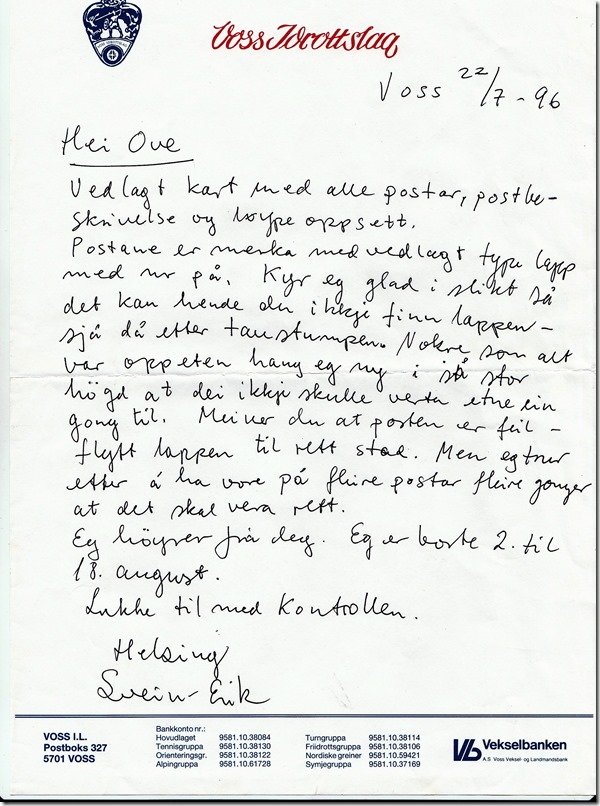 Voss Idrottslag
Voss 22/7-96
Hei Ove
Vedlagt kart med alle postar, postbe-
skrivelse og løype oppsett.
Postane er merka med vedlagt type lapp
med nr på. Kyr eg glad i slikt så
det kan hende du ikkje finn lappen -
sjå då etter taustumpen. Nokre som alt
var oppeten hang eg ny i så stor
högd at dei ikkje skulle verta etne ein
gong til. Meiner du at posten er feil -
flytt lappen til rett stad. Men eg trur
etter å ha vore på fleire postar fleire gonger
at det skal vera rett.
Eg höyrer frå deg. Eg er borte 2. til
18. august.
Lukke til med kontrollen.
Helsing
Svein-Erik
VOSS I.L.
Postboks 327
5701 VOSS
Bankkonto nr.:
Hovudlaget 9581.10.38084
Tennisgruppa 9581.10.38130
Orienteringsgr. 9581.10.38122
Alpingruppa 9581.10.61728
Turngruppa 9581.10.38114
Friidrottsgruppa 9581.10.38106
Nordiske greiner 9581.10.59421
Symjegruppa 9581.10.37169
Vb Vekselbanken
A.S Voss Veksel- og Landmandsbank